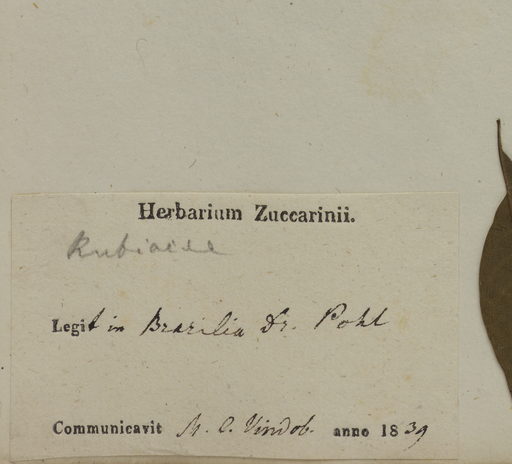 Herbarium Zuccarinii.
Rubiaceae
Legit in Brazilia Dr. Pohl
Communicavit M. C. Vindob. anno 1839